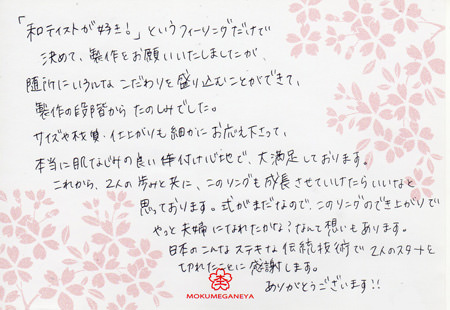 「和テイストが好き！」というフィーリングだけで
決めて、製作をお願いいたしましたが、
随所にいろんなこだわりを盛り込むことができて、
製作の段階からたのしみでした。
サイズや材質・仕上がりも細かにお応え下さって、
本当に肌なじみの良い付け心地で、大満足しております。
これから、2人の歩みと共に、このリングも成長させていけたらいいなと
思っております。式がまだなので、このリングのでき上がりで
やっと夫婦になれたかな？なんて想いもあります。
日本のこんなステキな伝統技術で2人のスタートを
切れたことに感謝します。
ありがとうございます!!
MOKUMEGANEYA